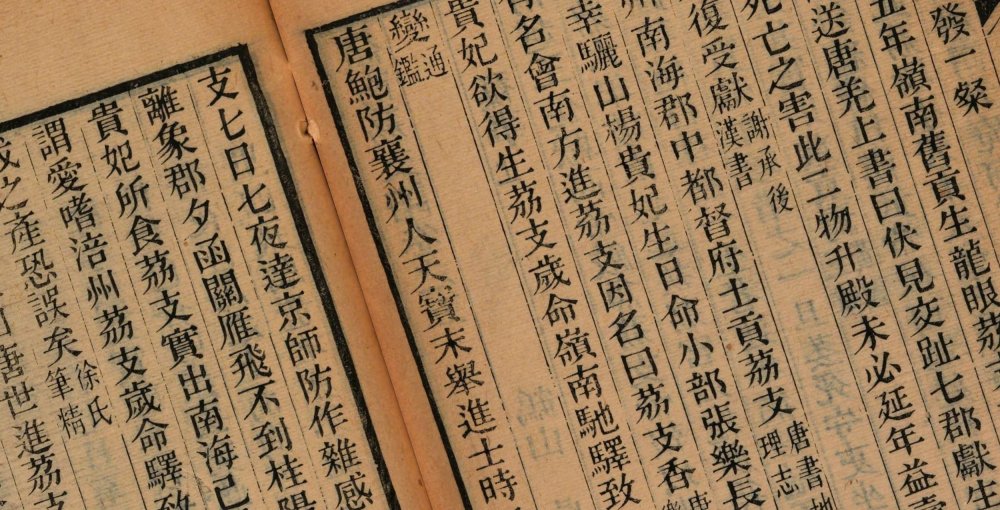 發一粲
五年嶺南舊貢生龍眼荔
送唐羌上書曰伏見交趾七郡獻生
死亡之害此二物升殿未必延年益壽
復受獻謝承後漢書
州南海郡中都督府土貢荔支唐書地理志
幸驪山楊貴妃生日命小部張樂長
有名會南方進荔支因名曰荔支香唐
貴妃欲得生荔支歲命嶺南馳驛致
通變鑑
唐鮑防襄州人天寶末舉進士時
支七日七夜達京師防作雜感
離象郡夕函關雁飛不到桂陽
貴妃所食荔支實出南海己
謂愛嗜涪州荔支歲命驛致
之產恐誤矣徐氏筆精
善世進荔支